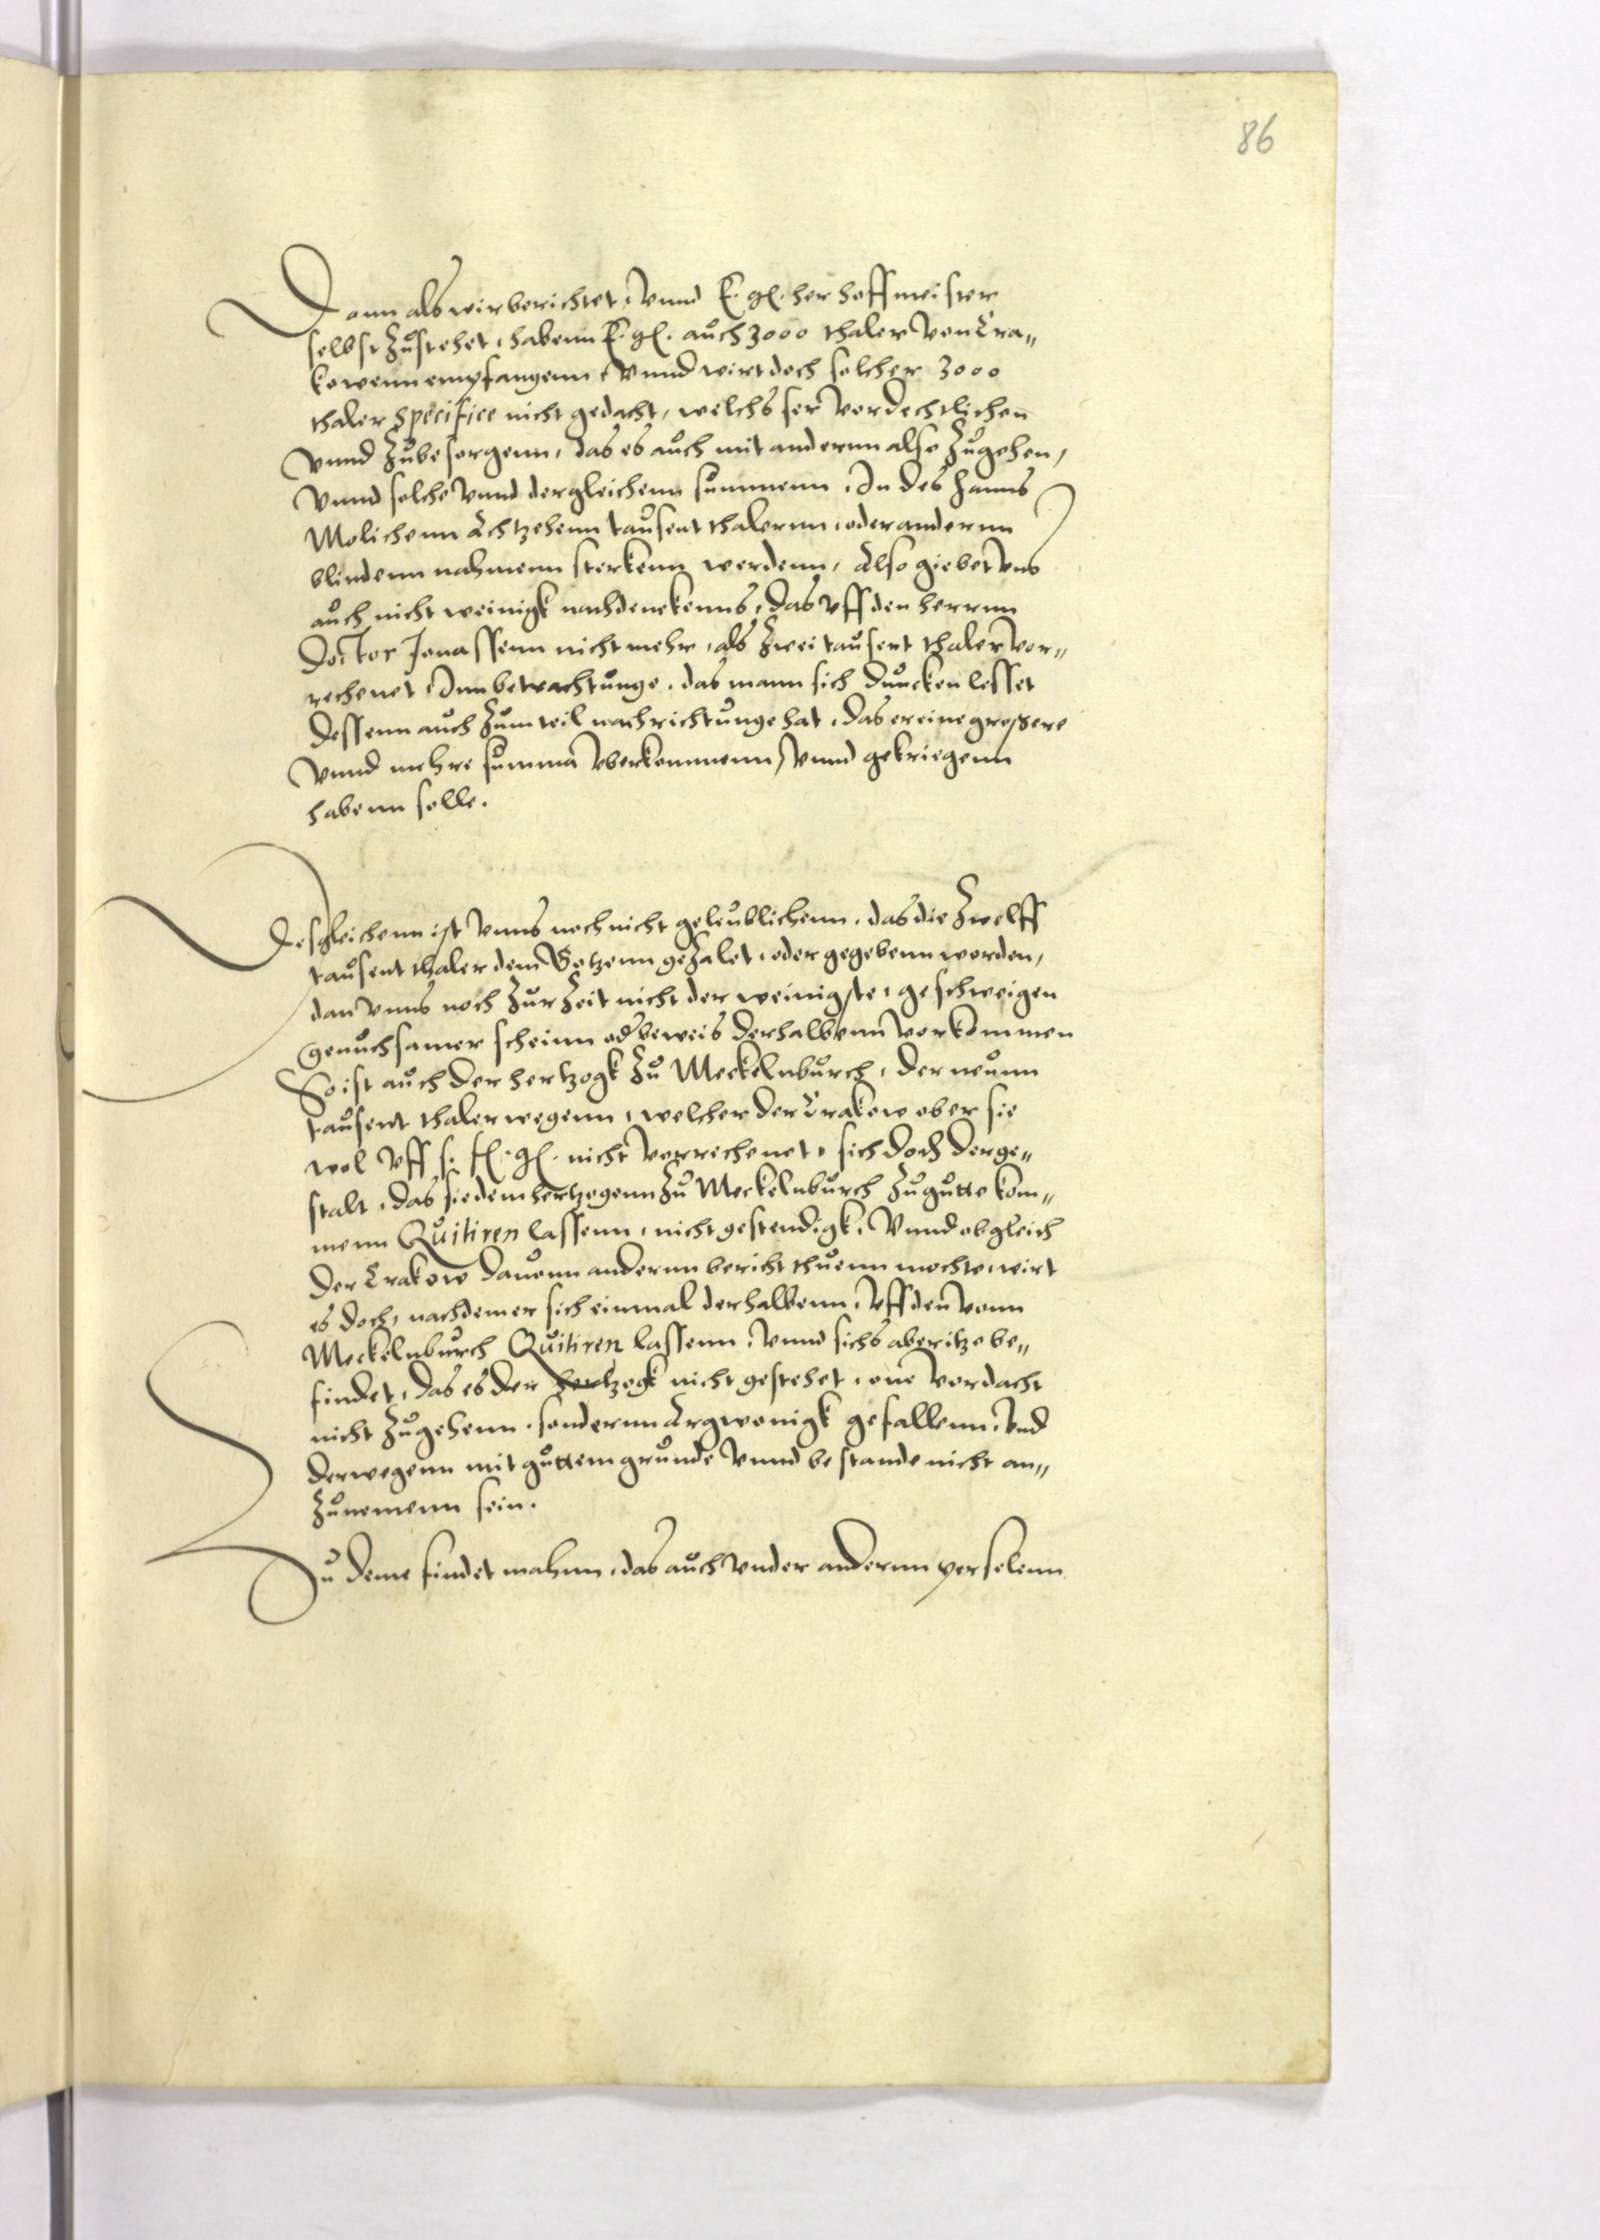 86
Dann als wir berichtet, vnnd E. gl. her hoffmeister
selbst zustehet, habenn E. gl. auch 3000 thaler von Cra„
kowenn empfangenn, vnnd wirt doch solcher 3000
thaler specifice nicht gedacht, welchs ser verdechtlichen
vnnd zubesorgenn, das es auch mit andernn also zugehen,
vnnd solche vnnd dergleichenn summenn, In des Hanns
Molichenn Achtzehenn tausent thalernn, oder anderenn
blindenn nahmenn sterkenn werdenn, Also giebet vns
auch nicht weinigk nachdenckenns, das vff den herrnn
Doctor Jonassenn nicht mehr, als zwei tausent thaler ver„
rechenet, Inn betrachtunge, das mann sich duncken lesset
dessenn auch zum teil nachrichtunge hat, das er eine großere
vnnd mehre summa vberkommenn, vnnd gekriegenn
habenn solle.
Desgleichenn ist vnns noch nicht geleublichenn, das die zwelff
tausent thaler dem Gotzenn gezalet, oder gegebenn worden,
dan vnns noch zur zeit nicht der weinigste, geschweigen
genuchsamer scheinn od beweis derhalbenn vorkommen
So ist auch der hertzogk zu Meckelnburch, der neunn
tausent thaler wegenn, welcher der Crakow ober sie
wol vff s. fl. gl. nicht verrechenet, sich doch derge„
stalt, das sie dem hertzogenn zu Meckelnburch zugutte kom„
menn Quitiren lassenn, nicht gestendigk, Vnnd ob gleich
der Crakow dauonn anderenn bericht thuenn mochte, wirt
es doch, nachdem er sich einmal derhalbenn, vff den vonn
Meckelnburch Quitiren lassenn, vnnd sichs aber itzo be„
findet, das es der hertzogk nicht gestehet, one verdacht
nicht zugehenn, sondernn Argwenigk gefallenn, vnd
derwegenn mit guttem grunde vnnd bestande nicht an„
zunemenn sein.
Zu deme findet mahnn, das auch vnder anderenn perselenn